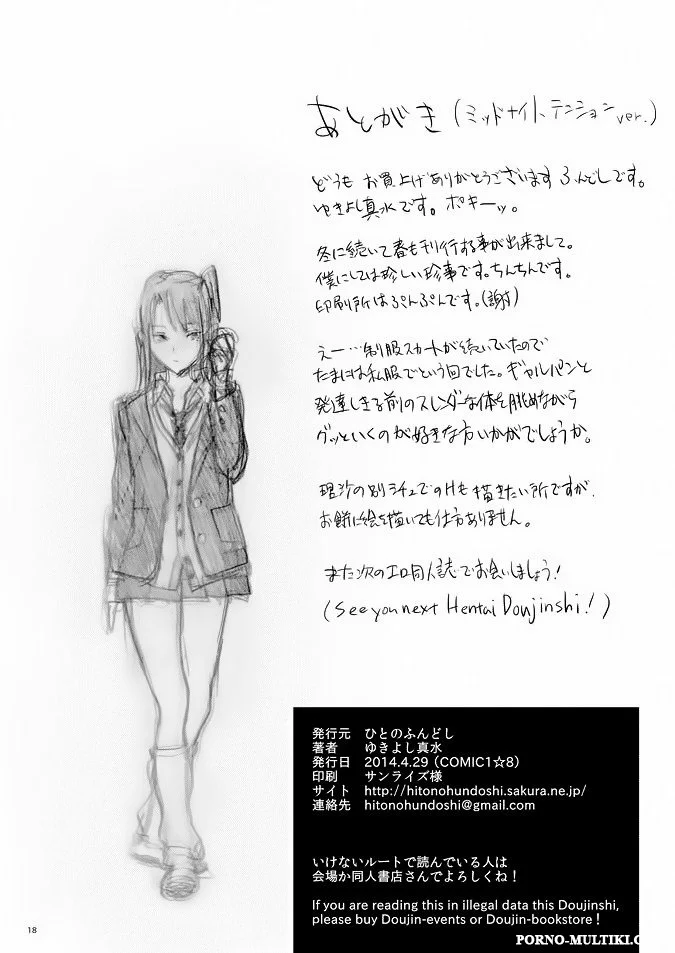 あとがき（ミッドナイトテンションver.）
どうも お買上げありがとうございます ふんどしです。
ゆきよし真水です。ポキーッ。
冬に続いて春も刊行する事が出来まして。
僕にしては珍しい珍事です。ちんちんです。
印刷所はぷんぷんです。（謝）
えー…制服スカートが続いていたので
たまには私服でという回でした。ギャルパンと
発達しきる前のスレンダーな体を眺めながら
グッといくのが好きな方いかがでしょうか。
理沙の別シチュでのHも描きたい所ですが、
お餅に絵を描いても仕方ありません。
また次のエロ同人誌でお会いしましょう！
(See you next Hentai Doujinshi!)
発行元 ひとのふんどし
著者 ゆきよし真水
発行日 2014.4.29（COMIC1☆8）
印刷 サンライズ様
サイト http://hitonohundoshi.sakura.ne.jp/
連絡先 hitonohundoshi@gmail.com
いけないルートで読んでいる人は
会場か同人書店さんでよろしくね！
If you are reading this in illegal data this Doujinshi,
please buy Doujin-events or Doujin-bookstore！
18
PORNO-MULTIKI.C